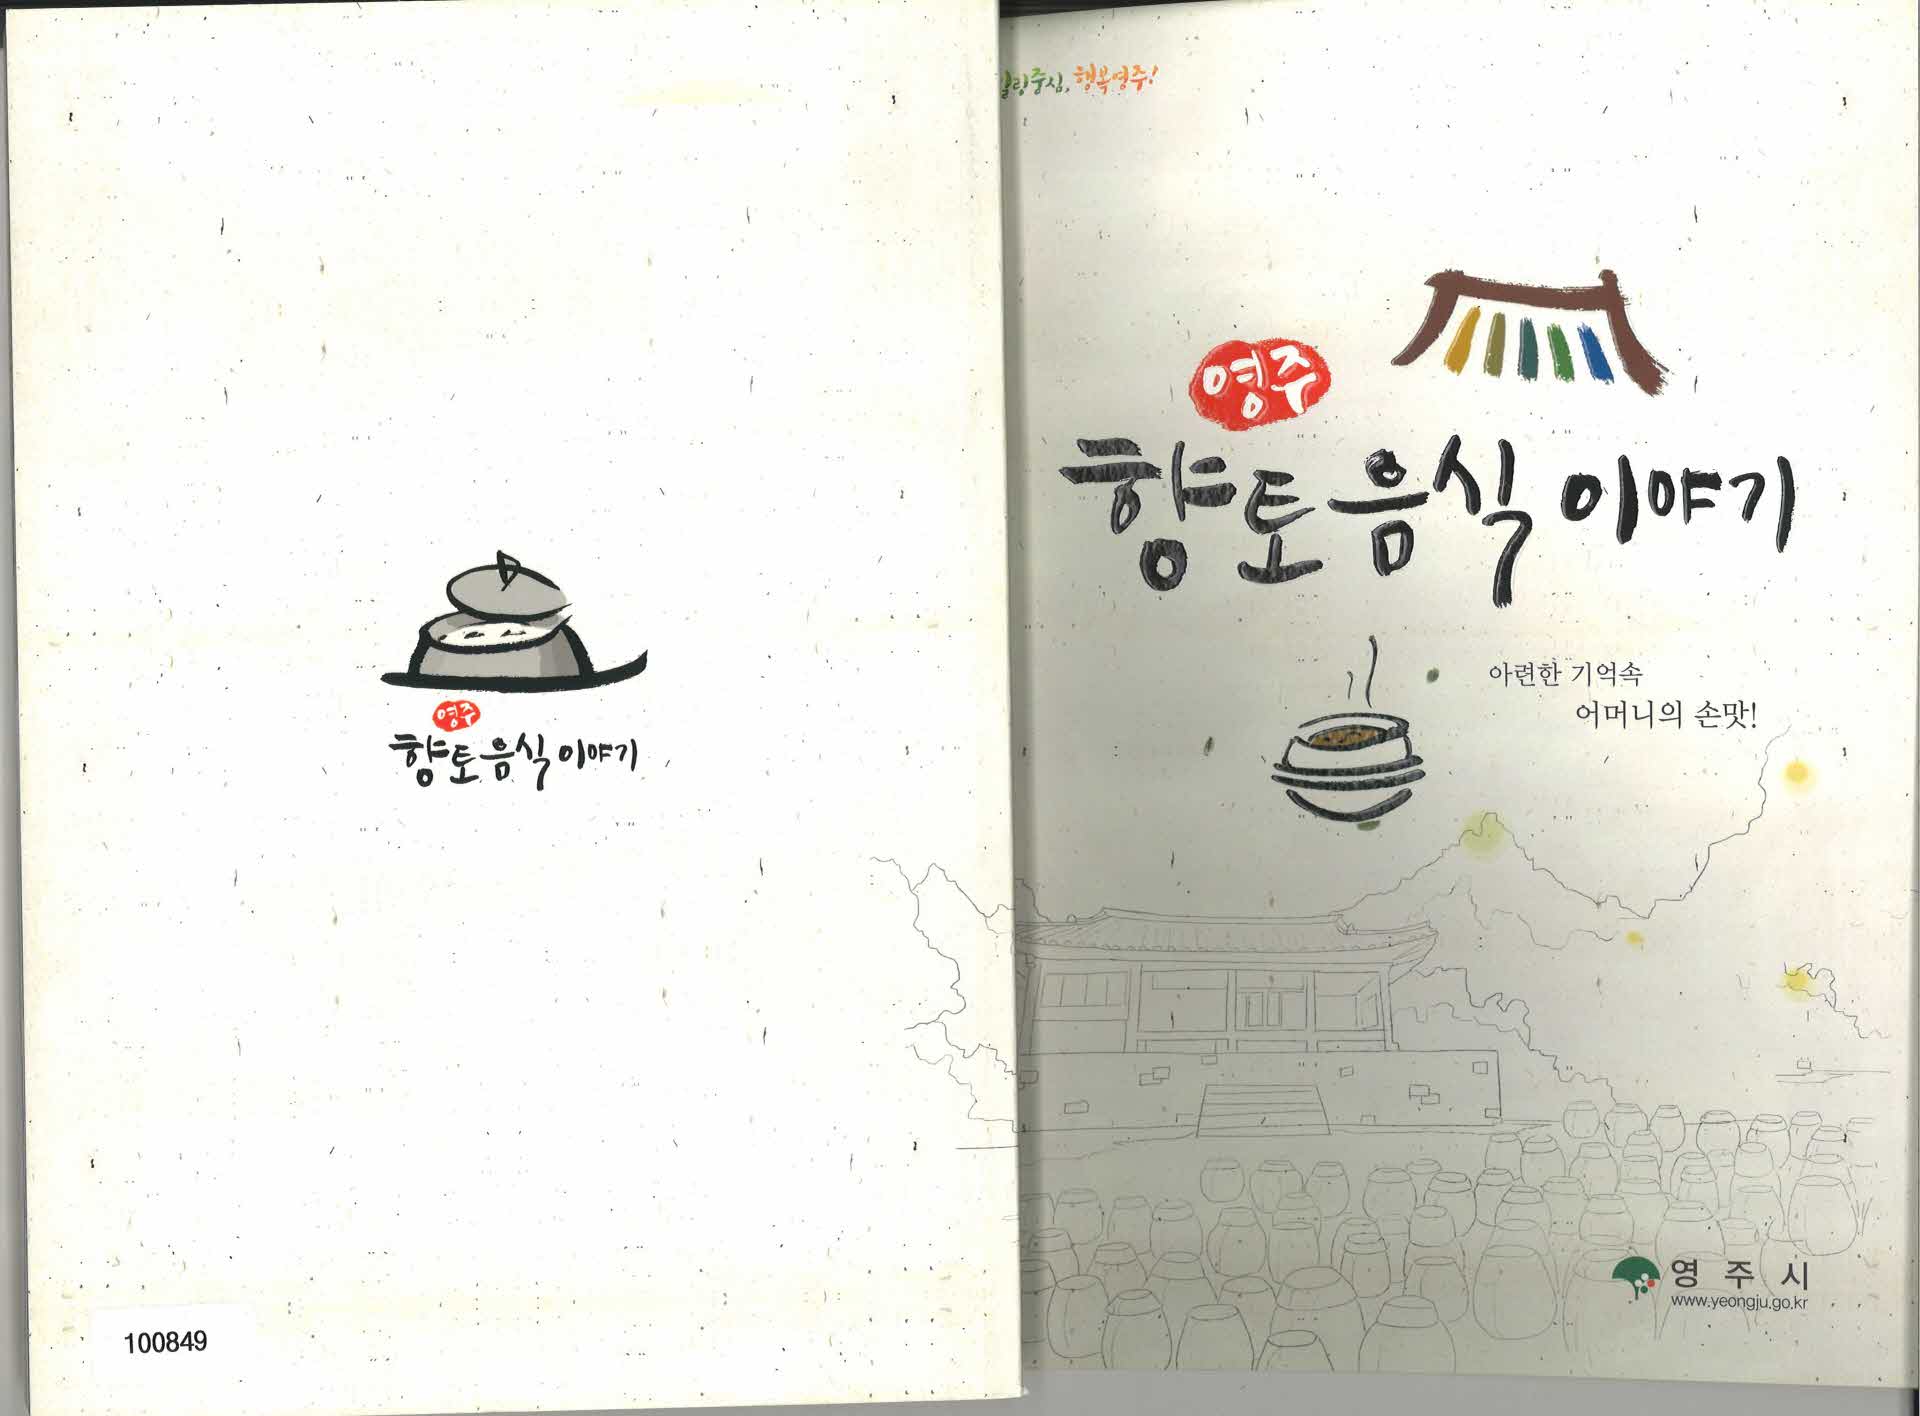 영주
향토음식이야기
100849
힐링중심, 행복영주!
영주
향토음식 이야기
아련한 기억속
어머니의 손맛!
영주시
www.yeongju.go.kr